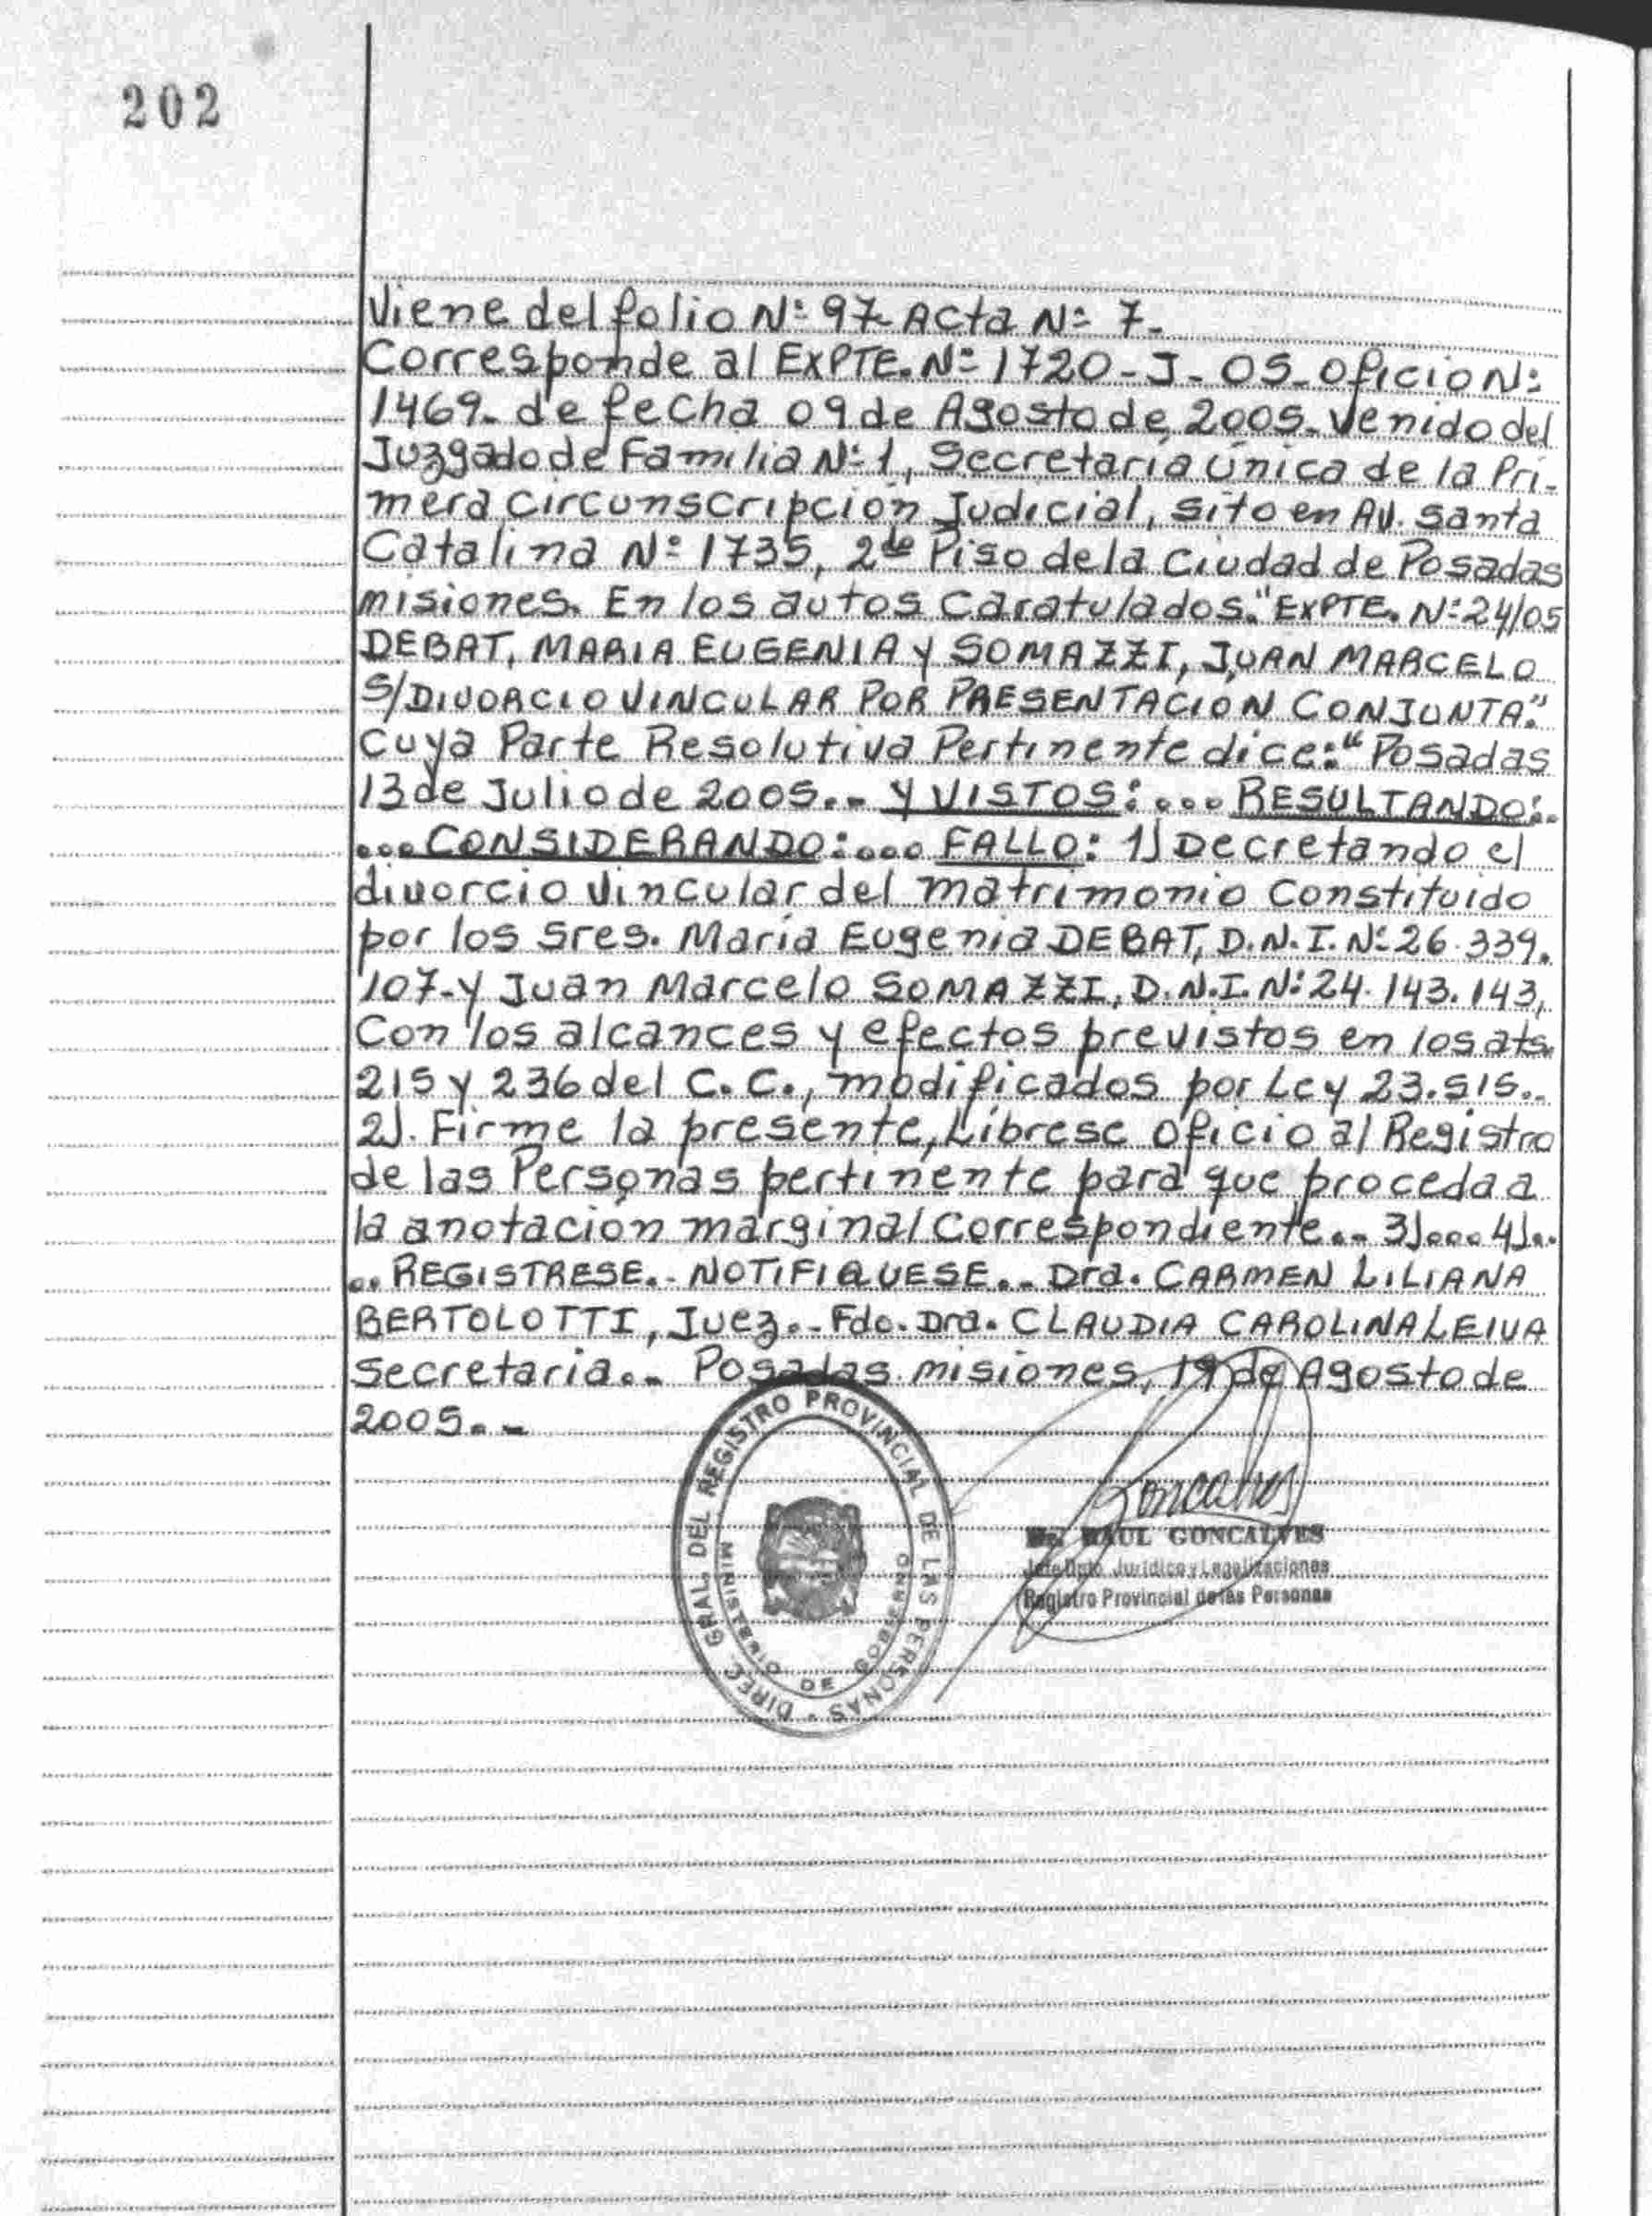 202
Viene del folio Nº 97 Acta Nº 7-
Corresponde al EXPTE. Nº 1720-J-05-Oficio Nº
1469- de fecha 09 de Agosto de 2005- Venido del
Juzgado de Familia Nº 1, Secretaría Única de la Pri-
mera Circunscripción Judicial, sito en AV. Santa
Catalina Nº 1735, 2do Piso de la Ciudad de Posadas
misiones. En los autos Caratulados."EXPTE. Nº 24/05
DEBAT, MARIA EUGENIA Y SOMAZZI, JUAN MARCELO
S/DIVORCIO VINCULAR POR PRESENTACION CONJUNTA."
Cuya Parte Resolutiva Pertinente dice:"Posadas
13 de Julio de 2005.- Y VISTOS:... RESULTANDO:..
...CONSIDERANDO:... FALLO: 1) Decretando el
divorcio Vincular del matrimonio Constituido
por los Sres. María Eugenia DEBAT, D.N.I. Nº 26.339.
107-y Juan Marcelo SOMAZZI, D.N.I. Nº 24.143.143,
Con los alcances y efectos previstos en los ats.
215 y 236 del C.C., modificados por Ley 23.515.-
2). Firme la presente, Líbrese oficio al Registro
de las Personas pertinente para que proceda a
la anotación marginal Correspondiente.- 3)... 4)..
.. REGISTRESE.- NOTIFIQUESE.- Dra. CARMEN LILIANA
BERTOLOTTI, Juez.- Fdo. Dra. CLAUDIA CAROLINA LEIVA
Secretaria.- Posadas misiones, 19 de Agosto de
2005.-
DIREC. GRAL. DEL REGISTRO PROVINCIAL DE LAS PERSONAS
MINISTERIO DE GOBIERNO
Goncalves
RAUL GONCALVES
Jefe Dpto Jurídico y Legalizaciones
Registro Provincial de las Personas